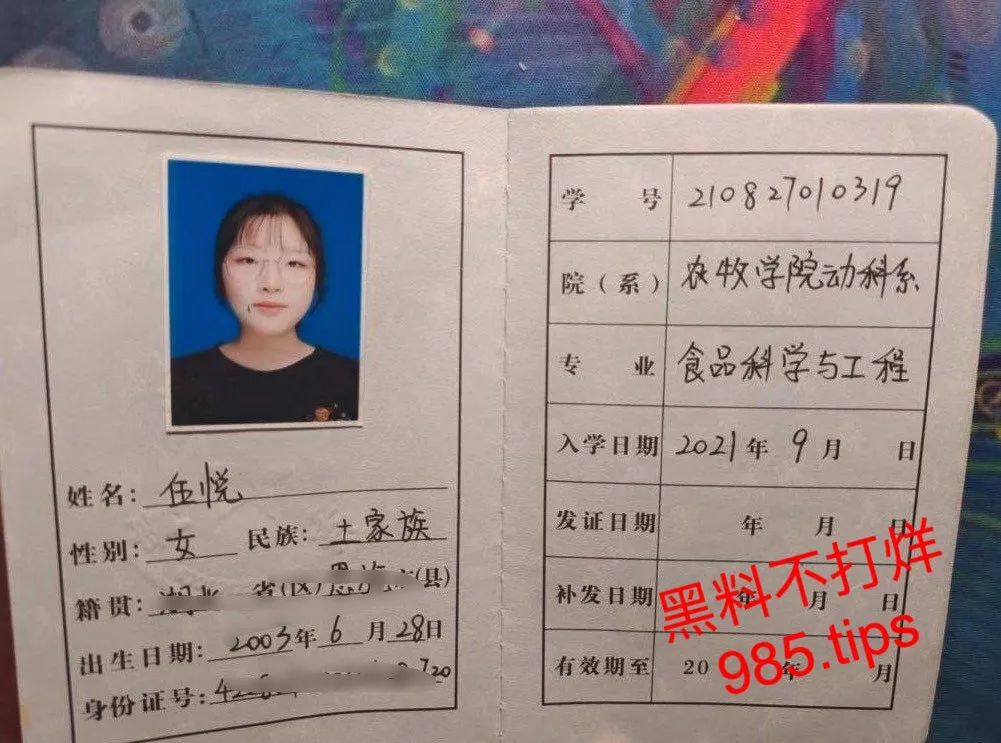 姓名：任悦
性别：女 民族：土家族
籍贯： 省(区) (县)
出生日期：2003年6月28日
身份证号：
学号 210827010319
院（系） 农牧学院动科系
专业 食品科学与工程
入学日期 2021年9月 日
发证日期 年 月 日
补发日期 年 月 日
有效期至 20 年 月
黑料不打烊
985.tips